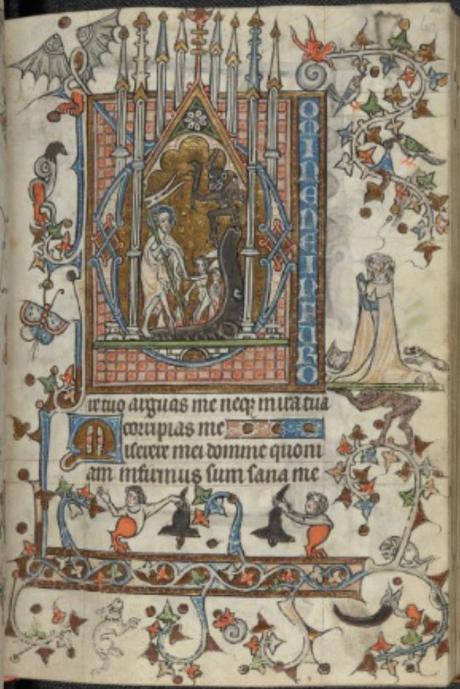 DOMINE NE IN FURO
re tuo arguas me neq; in ira tua
corripias me
Miserere mei domine quoni
am infirmus sum sana me